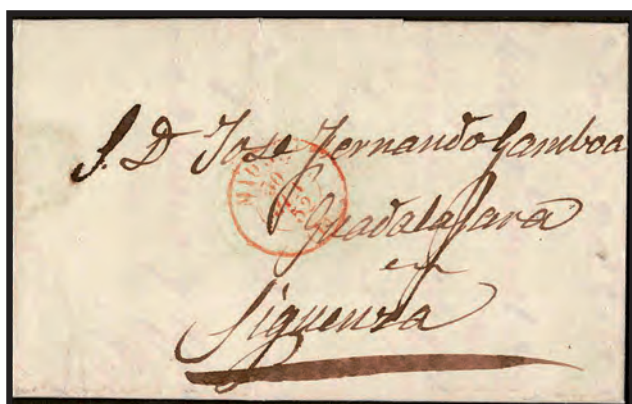 S. D Jose Fernando Gamboa
Guadalajara
en
Siguenza
30
52